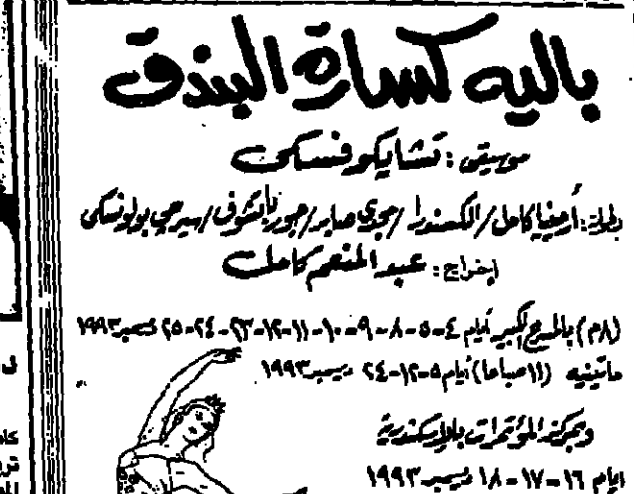 باليه كسارة البندق
موسيقى : تشايكوفسكى
بطولة : أرمينيا كامل / الكسندرا / مجدى صابر / جورباتشوف / سيرجى بولونسكى
إخراج : عبد المنعم كامل
(٨م) بالمسرح الكبير أيام ٤-٥-٨-٩-١٠-١١-١٢-٢٣-٢٤-٢٥ ديسمبر ١٩٩٣
ماتينيه (١١ صباحا) أيام ٥-١٢-٢٤ ديسمبر ١٩٩٣
وبمركز المؤتمرات بالإسكندرية
ايام ١٦-١٧-١٨ ديسمبر ١٩٩٣